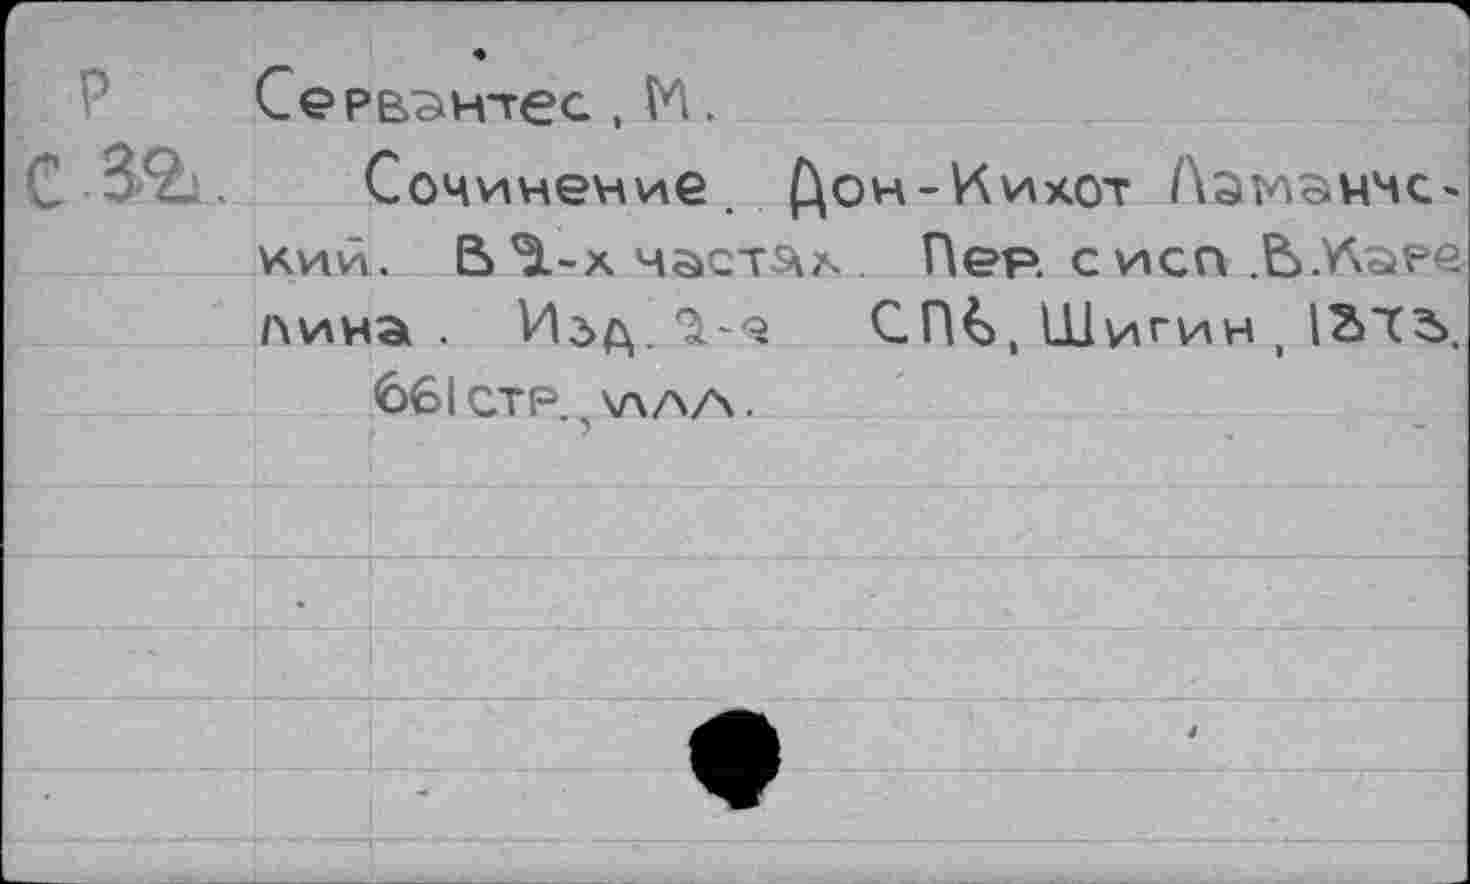 Р Сервантес, М.
С 32. Сочинение. Дон-Кихот Ламанчс-
кий. В 2-х частях. Пер. с исп. В.Каре
лина. Изд. 2-е СПб, Шигин, 1873.
661 стр., илл.